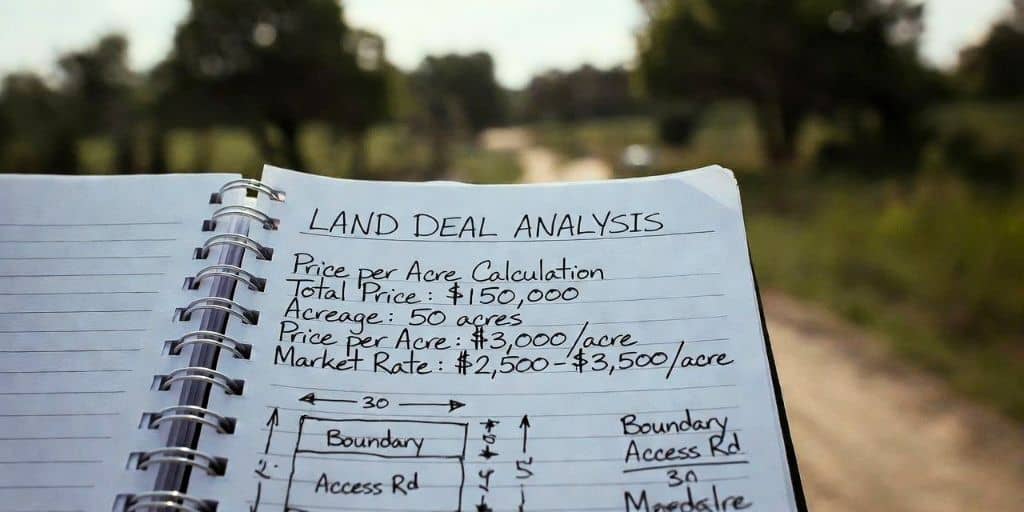 LAND DEAL ANALYSIS
Price per Acre Calculation
Total Price: $150,000
Acreage: 50 acres
Price per Acre: $3,000/acre
Market Rate: $2,500-$3,500/acre
30
Boundary
Access Rd
2'
5'
Boundary
Access Rd
30